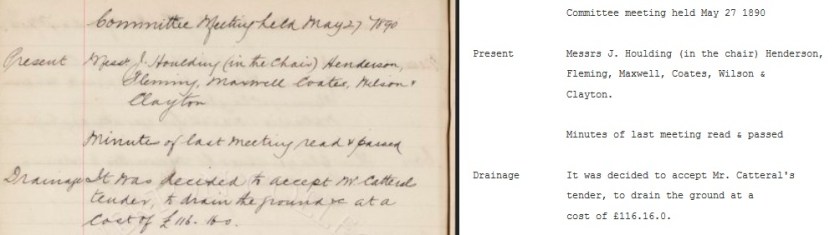 Committee Meeting held May 27 1890
Present Messrs J. Houlding (in the Chair) Henderson,
Fleming, Maxwell Coates, Wilson &
Clayton
Minutes of last Meeting read & passed
Drainage It was decided to accept Mr Catterals
tender, to drain the ground &c at a
Cost of £116.
Committee meeting held May 27 1890
Present Messrs J. Houlding (in the chair) Henderson,
Fleming, Maxwell, Coates, Wilson &
Clayton.
Minutes of last meeting read & passed
Drainage It was decided to accept Mr. Catteral's
tender, to drain the ground at a
cost of £116.16.0.